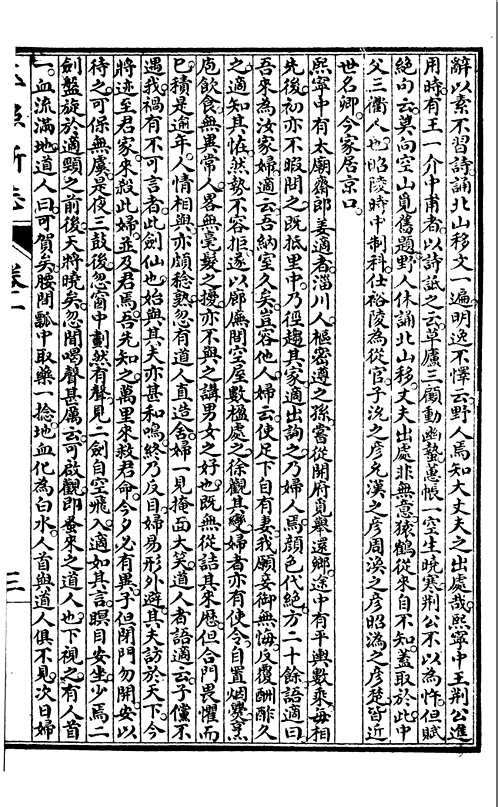 辭以素不習詩誦北山移文一遍明逸不懌云野人焉知大丈夫之出處哉熙寧中王荆公進
用時有王一介中甫者以詩詆之云草廬三顧動幽蟄蕙帳一空生曉寒荆公不以為忤但賦
絕句云莫向空山覓舊題野人休誦北山移丈夫出處非無意猿鶴從來自不知蓋取於此中
父三衢人也昭陵時中制科仕裕陵為從官子沇之彦允漢之彦周渙之彦昭溈之彦楚皆近
世名卿今家居京口
熙寧中有太廟齋郎姜適者淄川人樞密遵之孫嘗從開府覓舉還鄉途中有平輿數乘每相
先後初亦不暇問之既抵里中乃徑趨其家適出詢之乃婦人焉顔色代絕方二十餘語適曰
吾來為汝家婦適云吾納室久矣豈容他人婦云使足下自有妻我願妾御無悔反覆酬酢久
之適知其恠然勢不容拒遂以廊廡間空屋數楹處之徐觀其變婦者亦有使令自置烟爨烹
庖飲食無異常人畧無毫髮之擾亦不與之講男女之好也既無從詰其來歷但合門畏懼而
巳積是逾年人情相與亦頗稔熟忽有道人直造舍婦一見掩面大笑道人者語適云子儻不
遇我禍有不可言者此劍仙也始與其夫亦甚和鳴終乃反目婦易形外避其夫訪於天下今
將迹至君家來殺此婦並及君焉吾先知之萬里來殺君命今夕必有異子但閉門勿開安以
待之可保無虞是夜三鼓後忽窗中劃然有聲見二劍自空飛入適如其言瞑目安坐少焉二
劍盤旋於適頸之前後天將曉矣忽聞喝聲甚厲云可啟觀即蚤來之道人也下視之有人首
一血流滿地道人曰可賀矣腰間瓢中取藥一捻地血化為白水人首與道人俱不見次日婦
新志
卷二
三